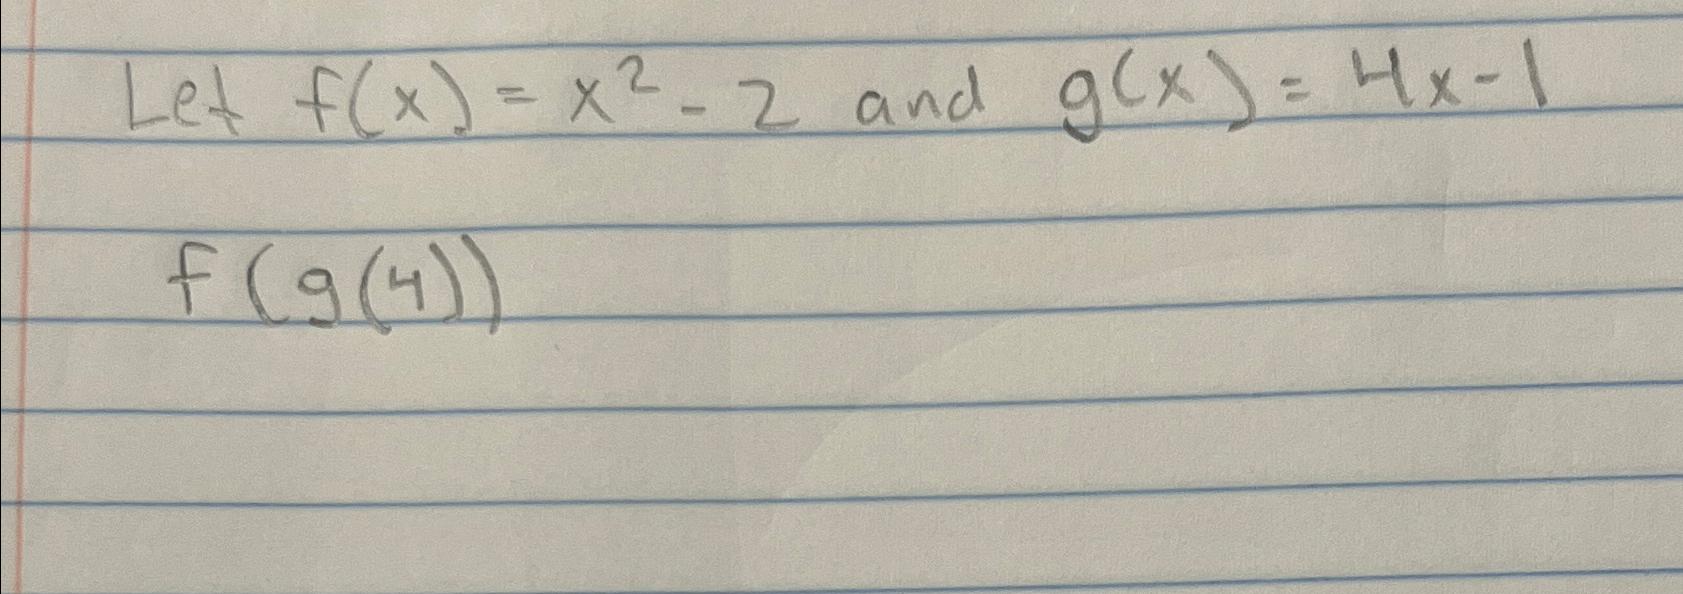 Let f(x) = x² - 2 and g(x) = 4x - 1
f(g(4))